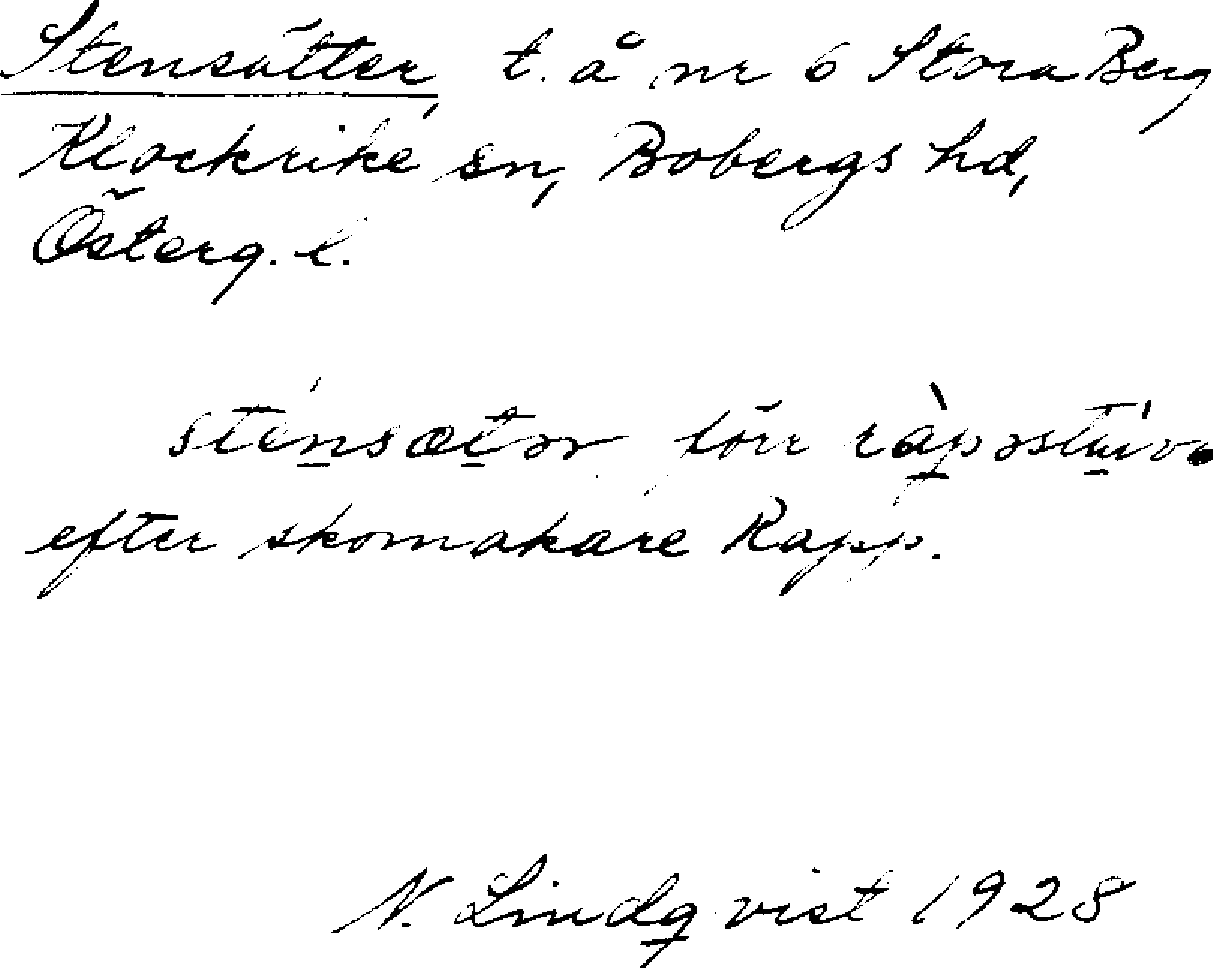 Stensätter, t. å nr 6 Stora Berg
Klockrike sn, Bobergs hd,
Österg. l.
sténsætər förr ràpəstúvə
efter skomakare Rapp.
N. Lindqvist 1928